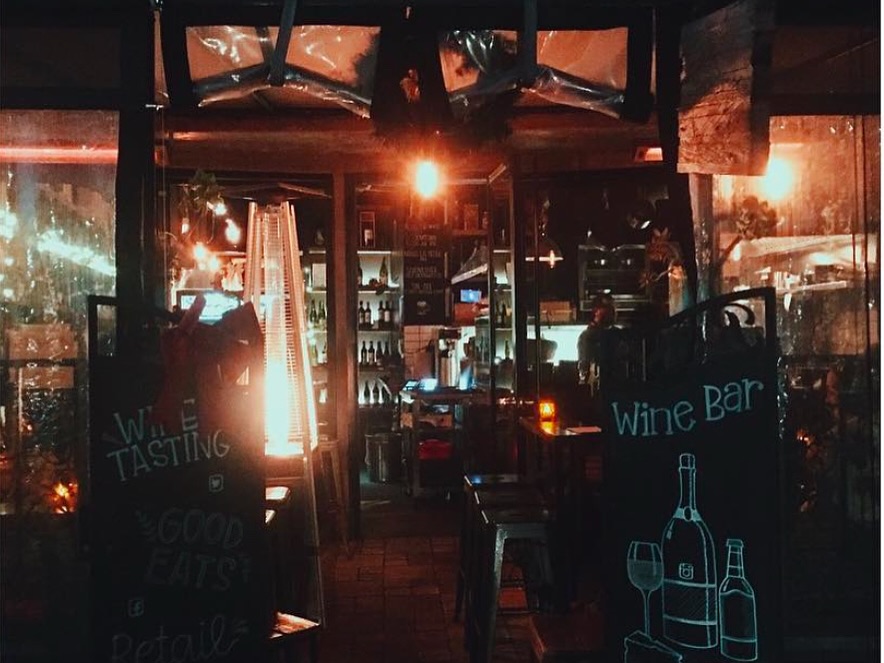 WINE
TASTING
GOOD
EATS
Retail
Wine Bar